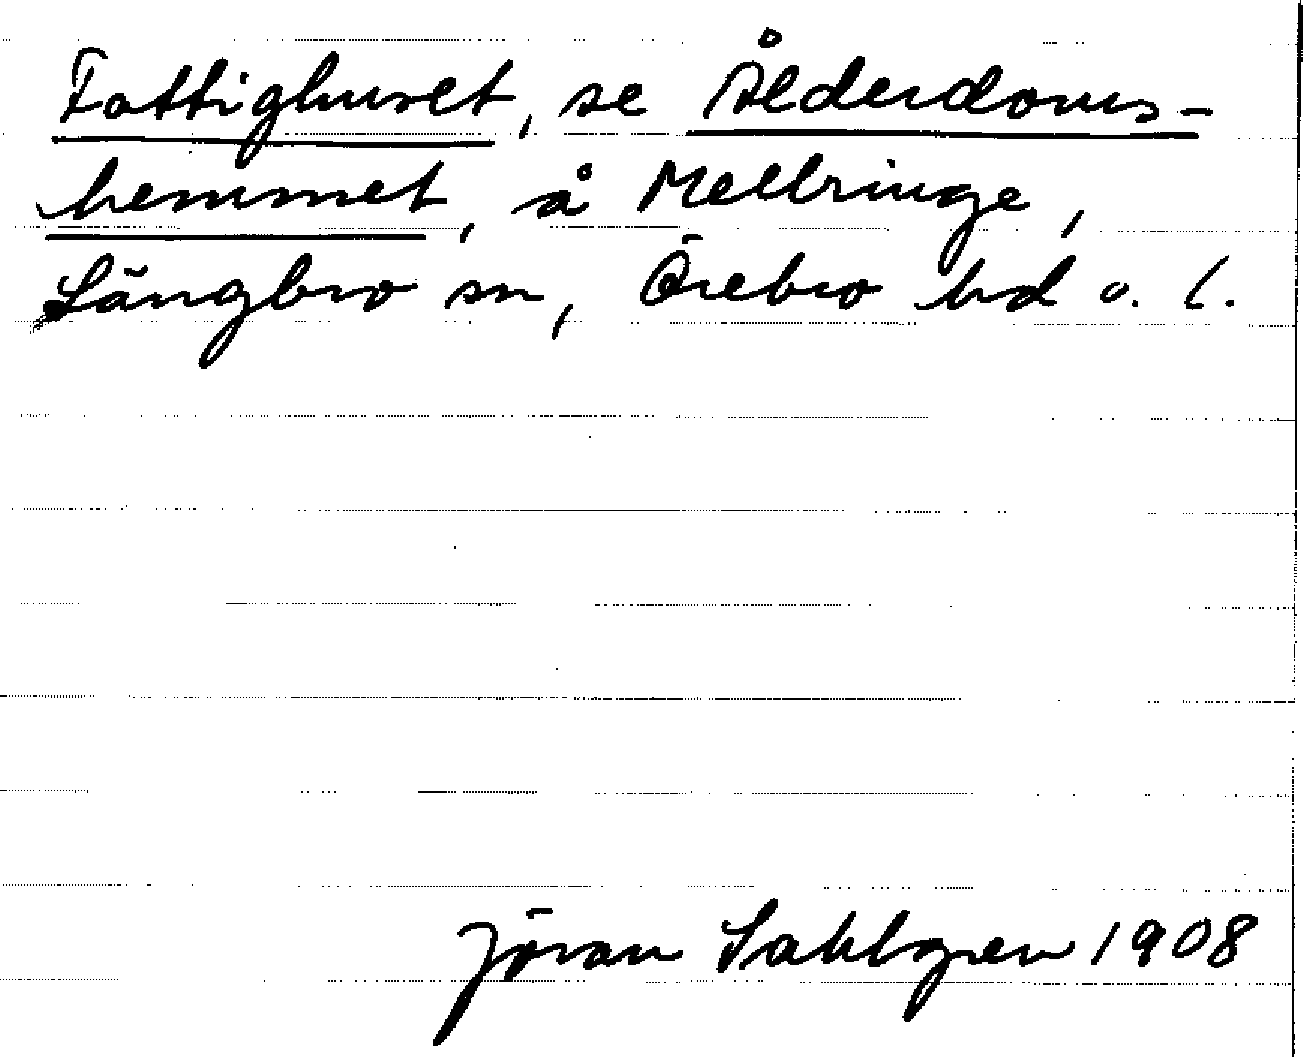 Fattighuset, se Ålderdoms-
hemmet, å Mellringe,
Längbro sn, Örebro hd o. l.
Jöran Sahlgren 1908